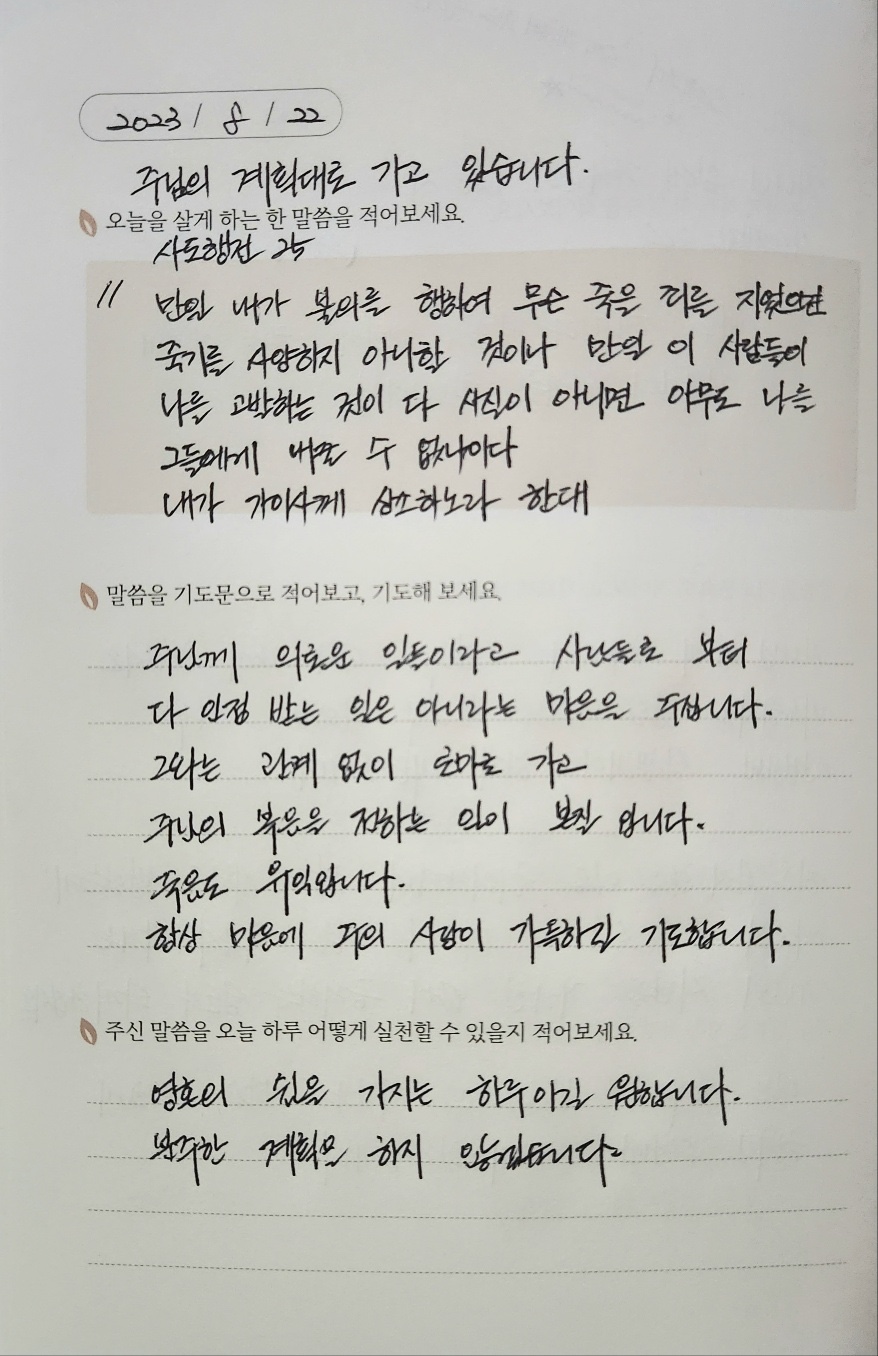 2023 / 8 / 22
주님의 계획대로 가고 있습니다.
오늘을 살게 하는 한 말씀을 적어보세요.
사도행전 25
11 만일 내가 불의를 행하여 무슨 죽을 죄를 지었으면
죽기를 사양하지 아니할 것이나 만일 이 사람들이
나를 고발하는 것이 다 사실이 아니면 아무도 나를
그들에게 내줄 수 없나이다
내가 가이사께 상소하노라 한대
말씀을 기도문으로 적어보고, 기도해 보세요.
주님께 의로운 일들이라고 사람들로 부터
다 인정 받는 일은 아니라는 마음을 주십니다.
그와는 관계 없이 로마로 가고
주님의 복음을 전하는 일이 본질 입니다.
죽음도 유익입니다.
항상 마음에 주의 사랑이 가득하길 기도합니다.
주신 말씀을 오늘 하루 어떻게 실천할 수 있을지 적어보세요.
영혼의 쉼을 가지는 하루이길 원합니다.
분주한 계획은 하지